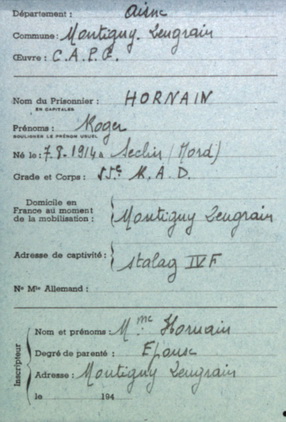 Département : Aisne
Commune : Montigny Lengrain
Œuvre : C.A.P.G.
Nom du Prisonnier : HORNAIN
EN CAPITALES
Prénoms : Roger
SOULIGNER LE PRÉNOM USUEL
Né le : 7.8.1914 à Seclin (Nord)
Grade et Corps : R.A.D.
Domicile en
France au moment
de la mobilisation : Montigny Lengrain
Adresse de captivité : Stalag IV F
No Mle Allemand :
Inscripteur
Nom et prénoms : Mme Hornain
Degré de parenté : Epouse
Adresse : Montigny Lengrain
le 194